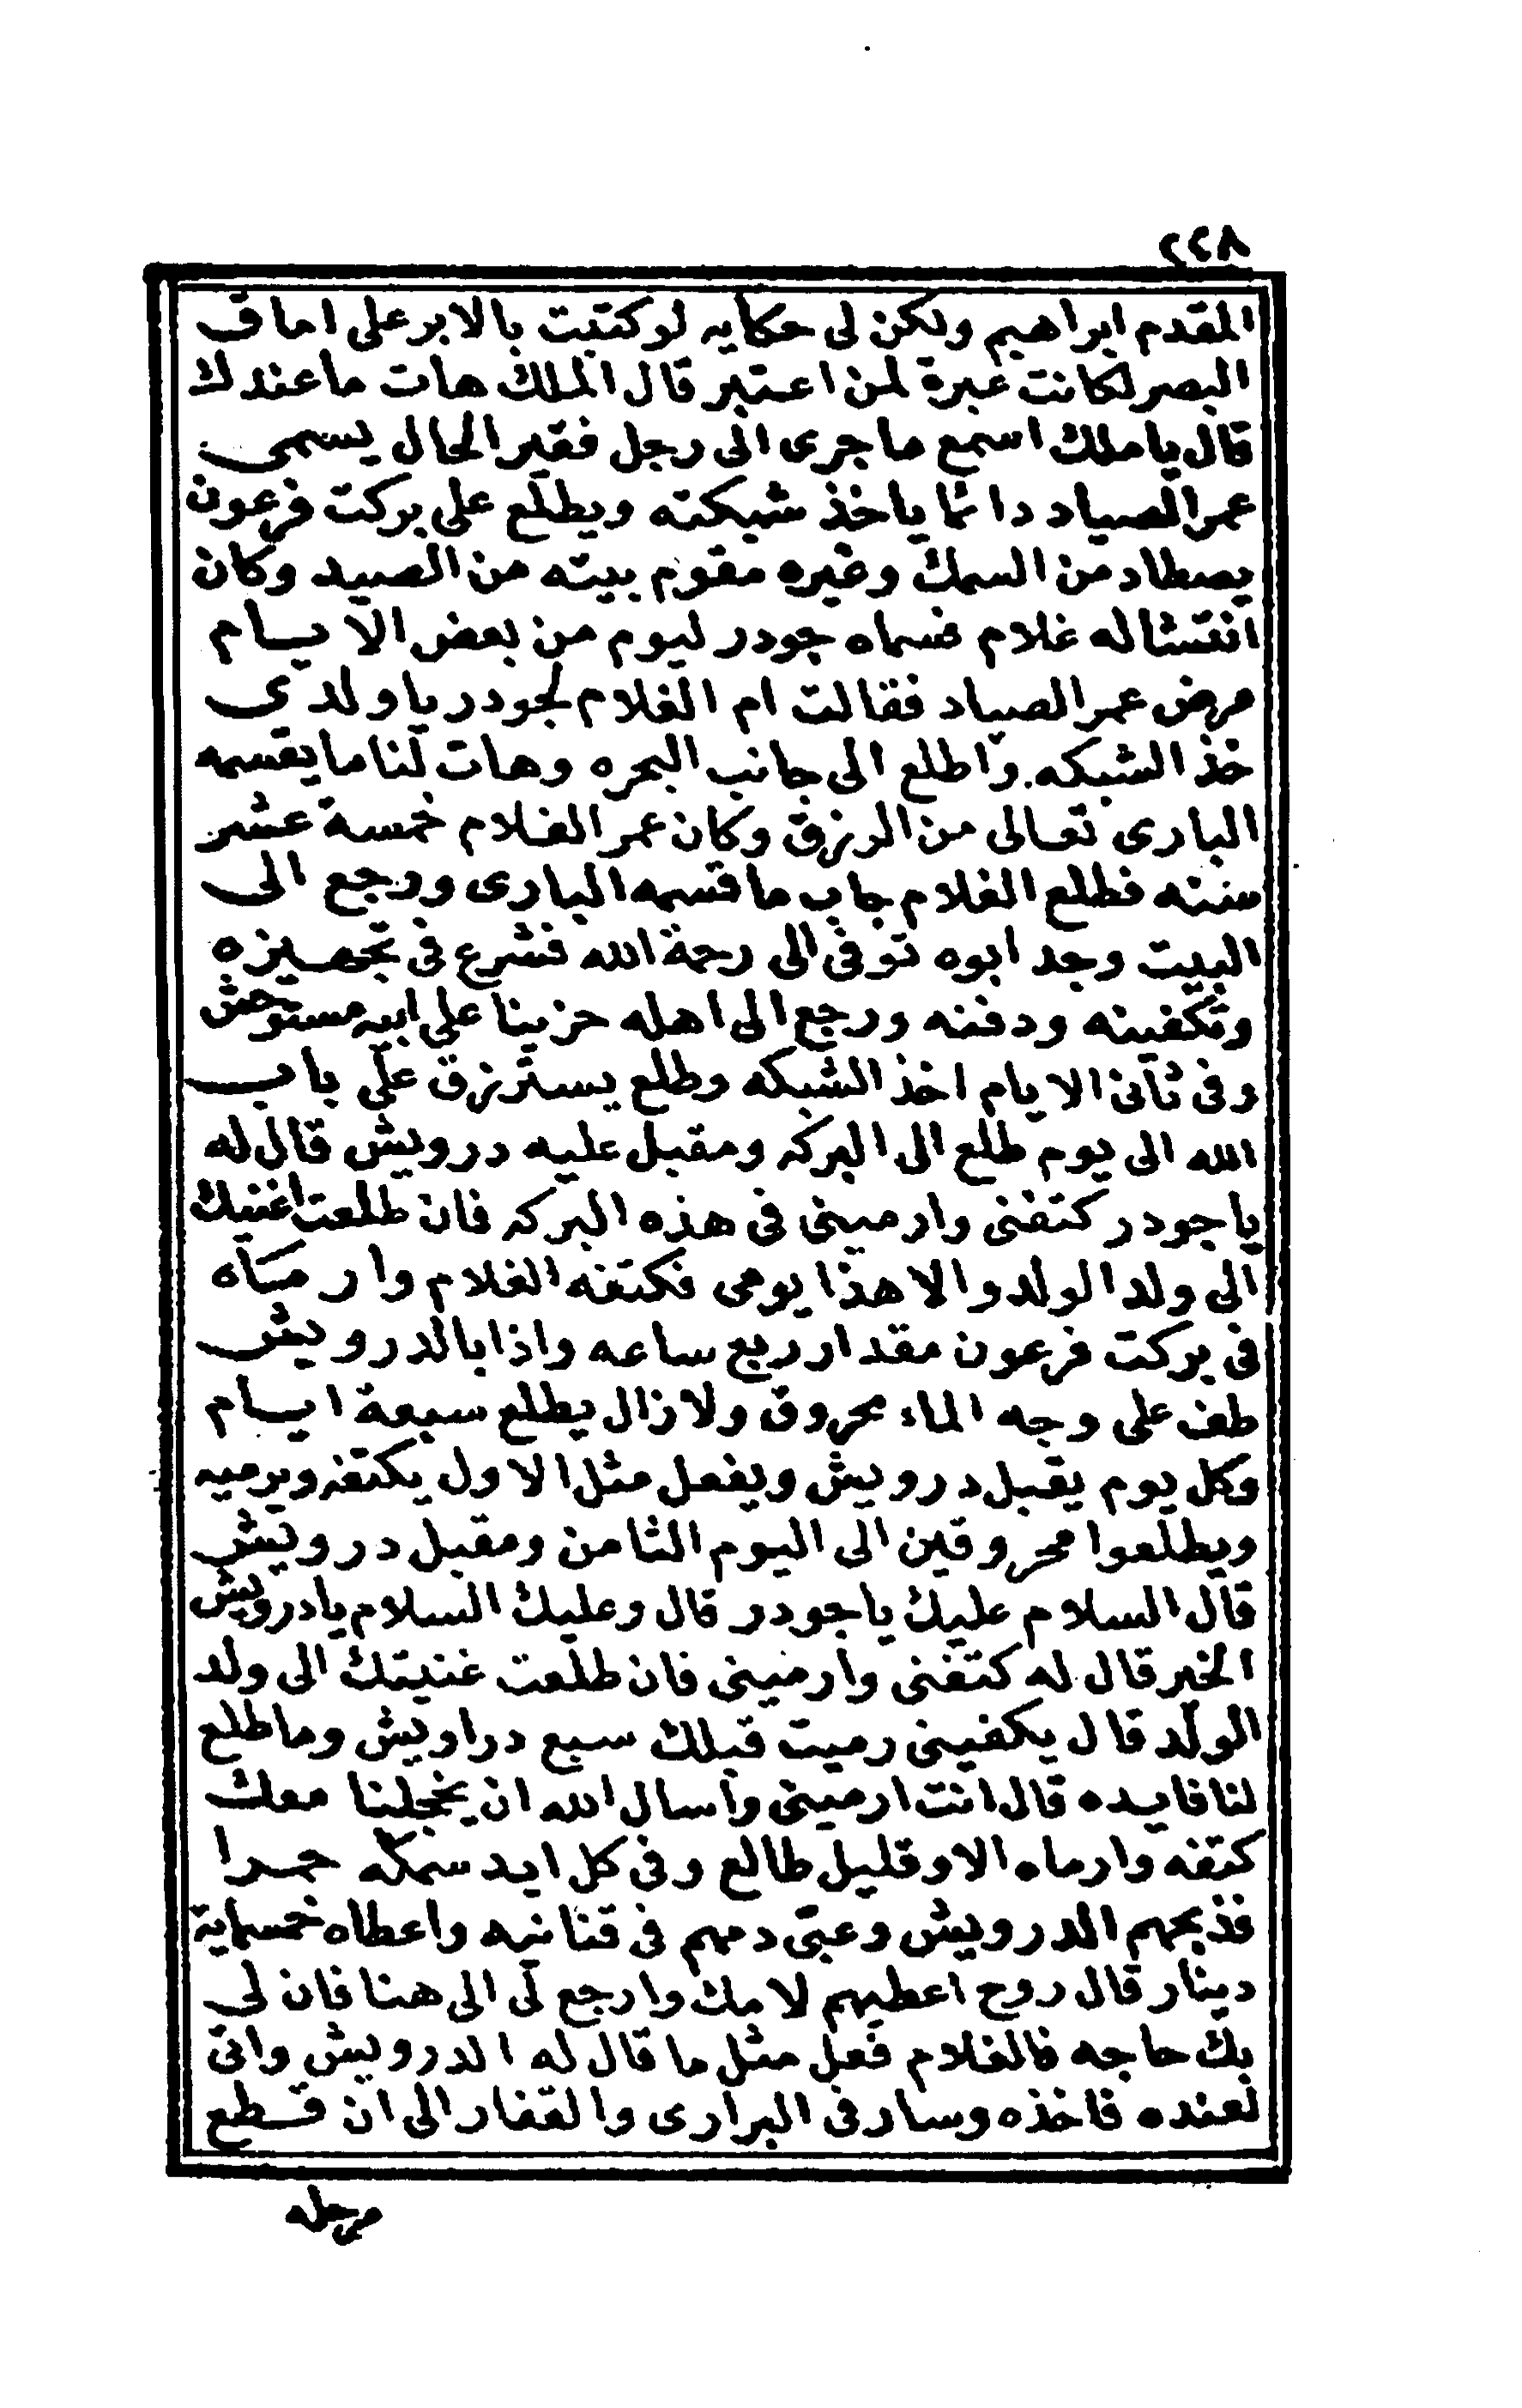 ٢٤٨
المقدم ابراهيم ولكن لى حكايه لو كتبت بالابر على اماق
البصر لكانت عبرة لمن اعتبر قال الملك هات ما عندك
قال يا ملك اسمع ما جرى الى رجل فقير الحال يسمى
عمر الصياد دائما ياخذ شبكته ويطلع على بركت فرعون
يصطاد من السمك وغيره مقوم بيته من الصيد وكان
انتشا له غلام فسماه جودر ليوم من بعض الايام
مرض عمر الصياد فقالت ام الغلام لجودر يا ولدي
خذ الشبكه واطلع الى جانب البحره وهات لنا ما يقسمه
البارى تعالى من الرزق وكان عمر الغلام خمسة عشر
سنته فطلع الغلام جاب ما قسمه البارى ورجع الى
البيت وجد ابوه توفى الى رحمة الله فشرع فى تجهيزه
وتكفينه ودفنه ورجع الى اهله حزينا على ابيه مستوحش
وفى ثانى الايام اخذ الشبكه وطلع يسترزق على باب
الله الى يوم طلع الى البركه ومقبل عليه درويش قال له
يا جودر كتفنى وارمينى فى هذه البركه فان طلعت اغنيك
الى ولد الولد والا هذا يومى فكتفه الغلام وارماه
فى بركت فرعون مقدار ربع ساعه واذا بالدرويش
طف على وجه الماء محروق ولا زال يطلع سبعة ايام
وكل يوم يقبل درويش ويفعل مثل الاول يكتفه ويرميه
ويطلعوا محروقين الى اليوم الثامن ومقبل درويش
قال السلام عليك يا جودر قال وعليك السلام يا درويش
الخير قال له كتفنى وارمينى فان طلعت غنيتك الى ولد
الولد قال يكفينى رميت قبلك سبع دراويش وما طلع
لنا فايده قال انت ارمينى واسال الله ان يخجلنا معك
كتفه وارماه الا وقليل طالع وفى كل ايد سمكه حمرا
فذبحهم الدرويش وعبى دمهم فى قنانيه واعطاه خمسماية
دينار قال روح اعطيهم لامك وارجع لى الى هنا فان لى
بك حاجه فالغلام فعل مثل ما قال له الدرويش واتى
لعنده فاخذه وسار فى البرارى والقفار الى ان قطع
مرحله